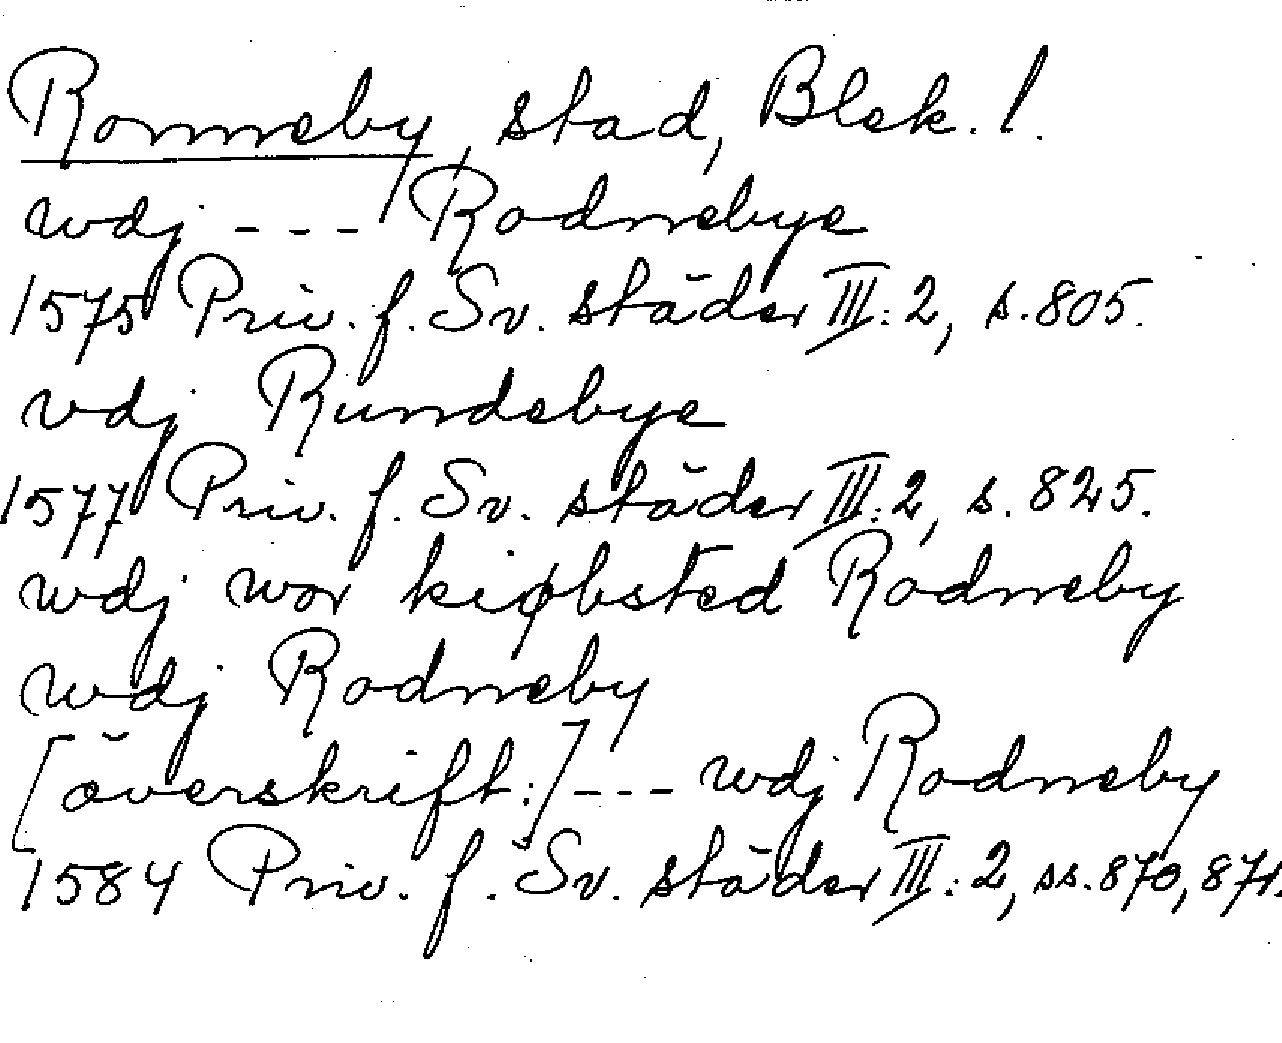 Ronneby, stad, Blek. l.
wdj --- Rodnebye
1575 Priv. f. Sv. städer III:2, s. 805.
vdj Rundebye
1577 Priv. f. Sv. städer III:2, s. 825.
wdj wor kiøbsted Rodneby
wdj Rodneby
[överskrift:] --- wdj Rodneby
1584 Priv. f. Sv. städer III:2, ss. 870, 871.